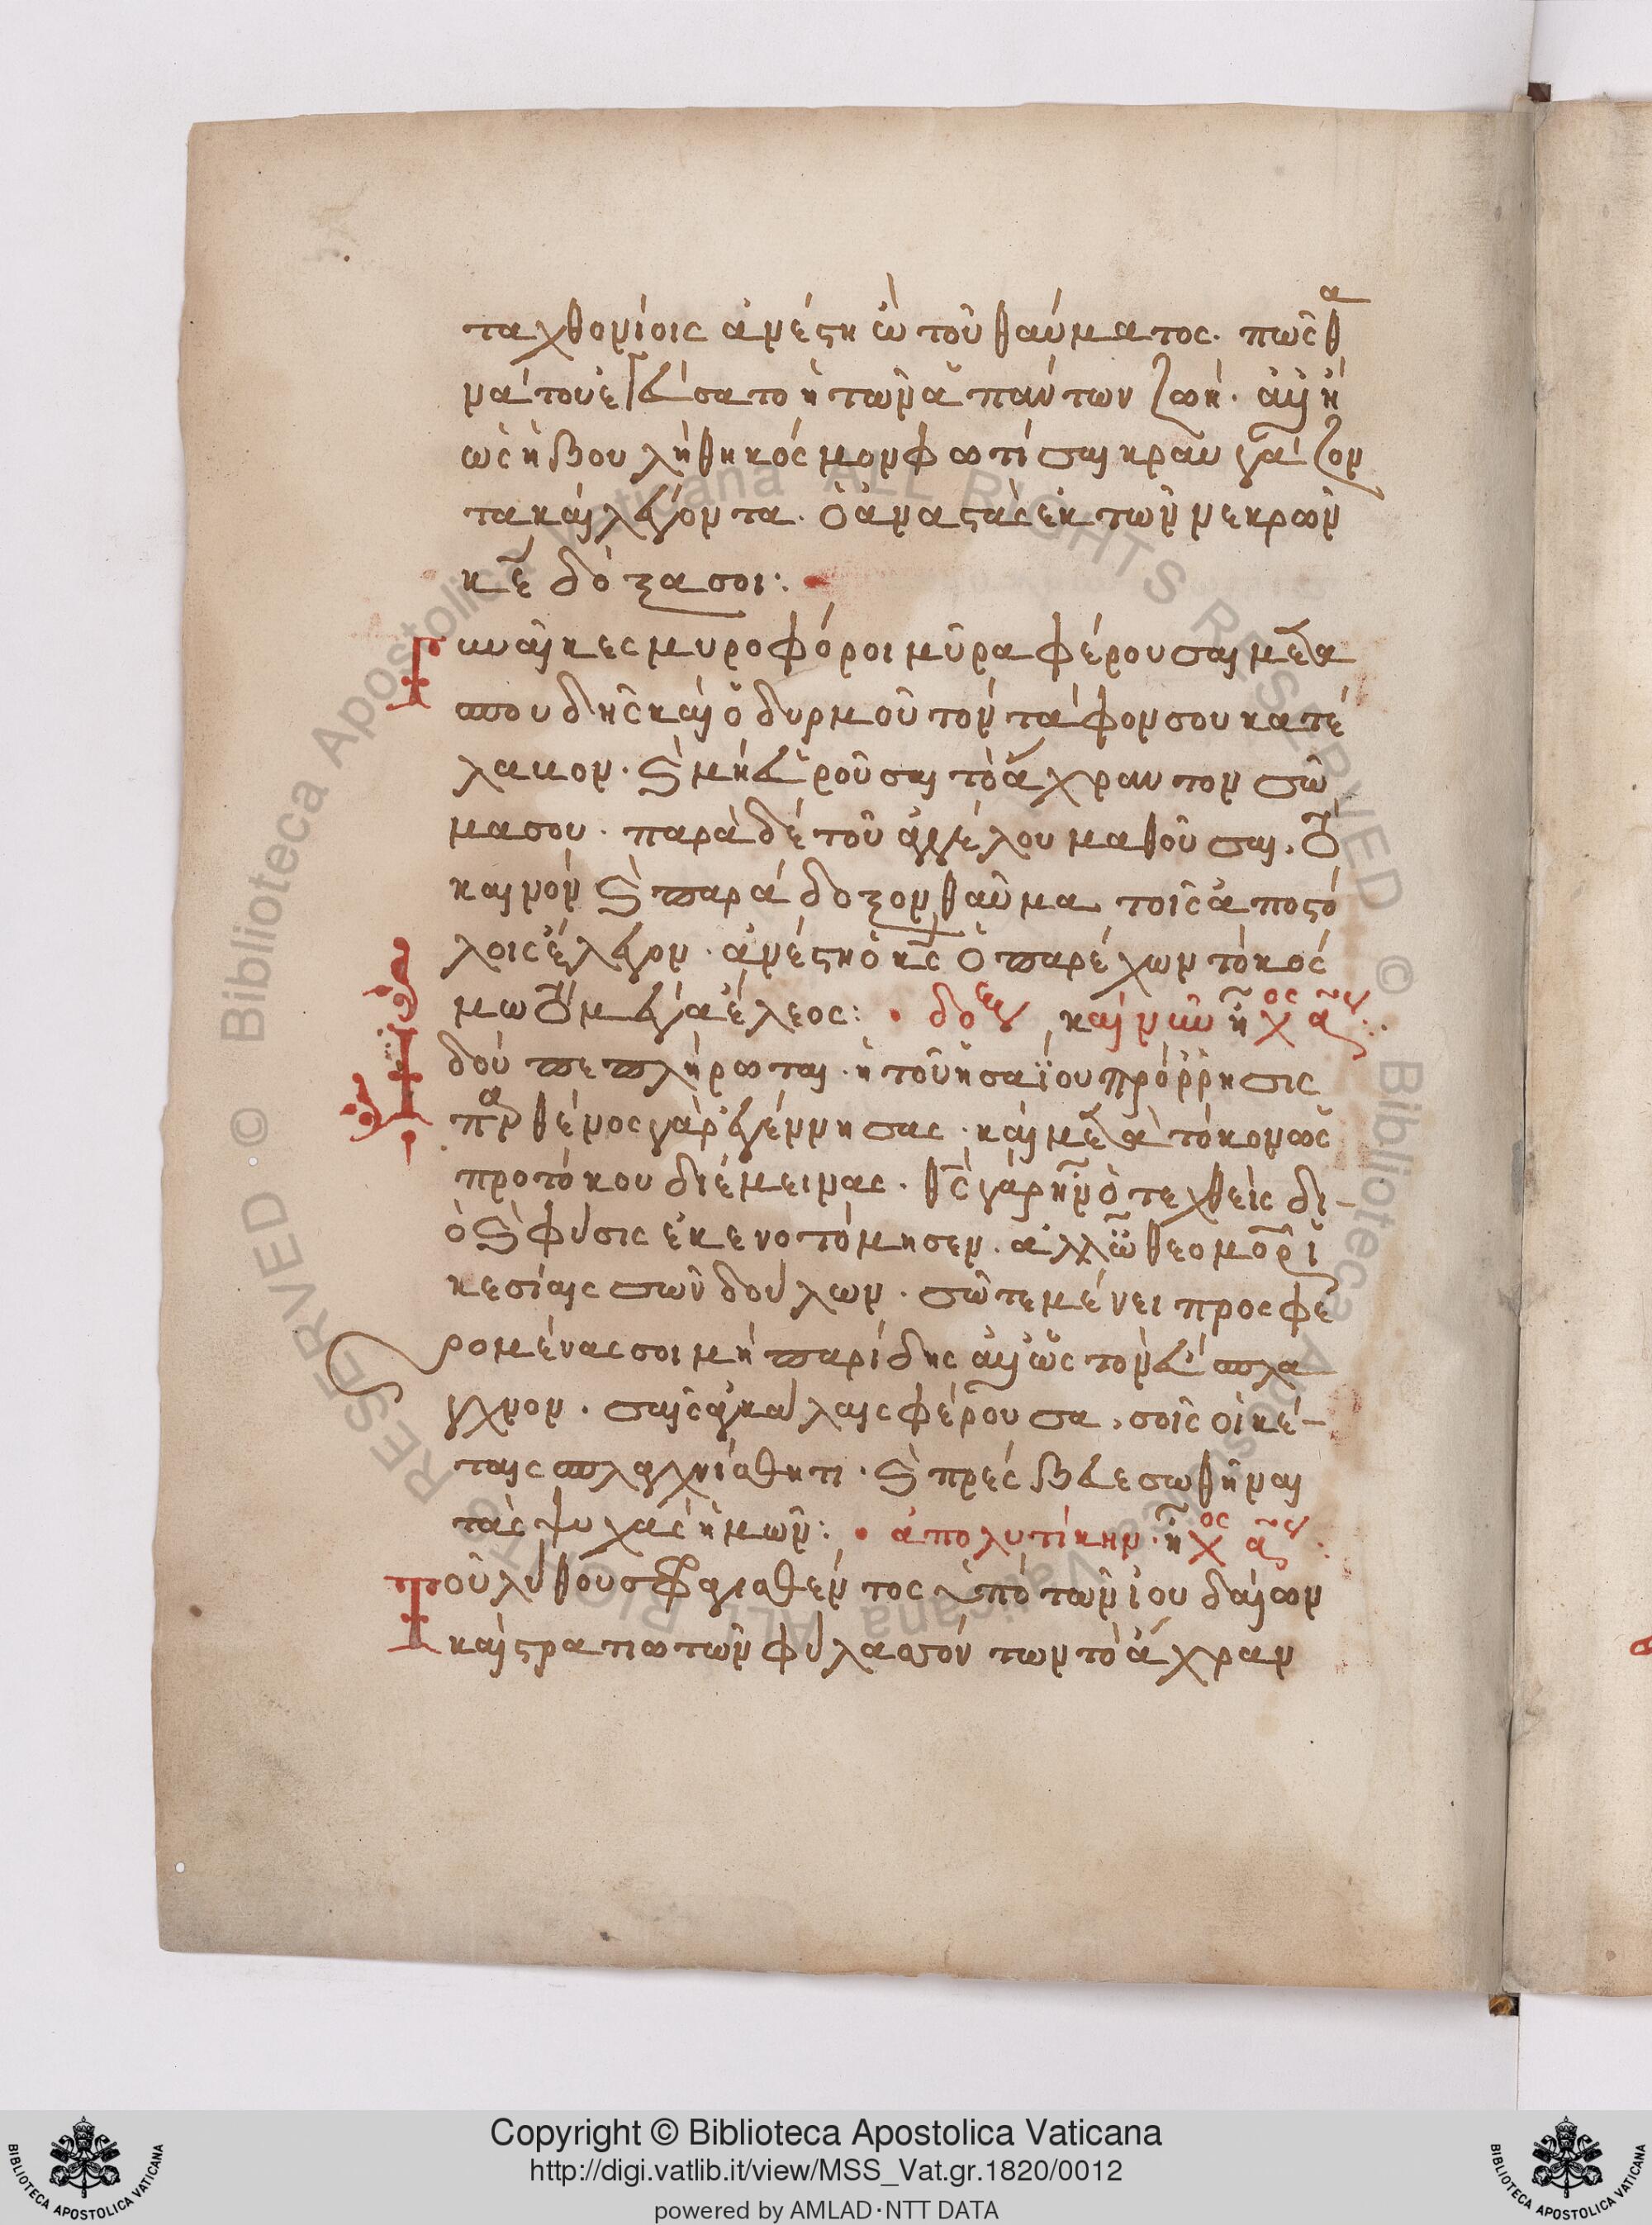 ταχθονίοις ἀνέστη ὦ τοῦ θαύματος· πῶς θα
νάτου ἐγεύσατο ἡ τῶν ἁπάντων ζωή· ἀλλ' ἢ
ὡς ἠβουλήθη κόσμον φωτίσαι κραυγάζον
τα καὶ λέγοντα· ὁ ἀναστὰς ἐκ τῶν νεκρῶν
κε δόξα σοι:
Γυναῖκες μυροφόροι μῦρα φέρουσαι μετὰ
σπουδῆς καὶ ὀδυρμοῦ τὸν τάφον σου κατέ
λαβον· καὶ μὴ εὑροῦσαι τὸ ἄχραντον σῶ
μα σου· παρὰ δὲ τοῦ ἀγγέλου μαθοῦσαι, τὸ
καινὸν καὶ παράδοξον θαῦμα τοῖς ἀποστό
λοις ἔλεγον· ἀνέστη ὁ κς ὁ παρέχων τῷ κόσ
μω τὸ μέγα ἔλεος: δο καὶ νῦν ἦχος α
Ἰδοὺ πεπλήρωται· ἡ τοῦ ἡσαΐου πρόρρησις
παρθένος γὰρ ἐγέννησας· καὶ μετὰ τόκον ὡς
προτόκου διέμεινας· θς γὰρ ἦν ὁ τεχθεὶς δι-
ὸ καὶ φύσις ἐκενοτόμησεν· ἀλλ' ὦ θεομορ ἱ
κεσίαις σῶν δούλων· σῶ τεμένει προσφε
ρομένας σοι μὴ παρίδης ἀλλ' ὡς τὸν εὔσπλα
γχνον· σαῖς ἀγκάλαις φέρουσα, σοῖς οἰκέ-
ταις σπλαγχνίσθητι· καὶ πρέσβευε σωθῆναι
τὰς ψυχὰς ἡμῶν: ἀπολυτίκην· ἦχος α
Τοῦ λίθου σφραγισθέντος ὑπὸ τῶν ἰουδαίων
καὶ στρατιωτῶν φυλασσόντων τὸ ἄχραν
Copyright © Biblioteca Apostolica Vaticana
http://digi.vatlib.it/view/MSS_Vat.gr.1820/0012
powered by AMLAD·NTT DATA
BIBLIOTECA APOSTOLICA VATICANA
BIBLIOTECA APOSTOLICA VATICANA